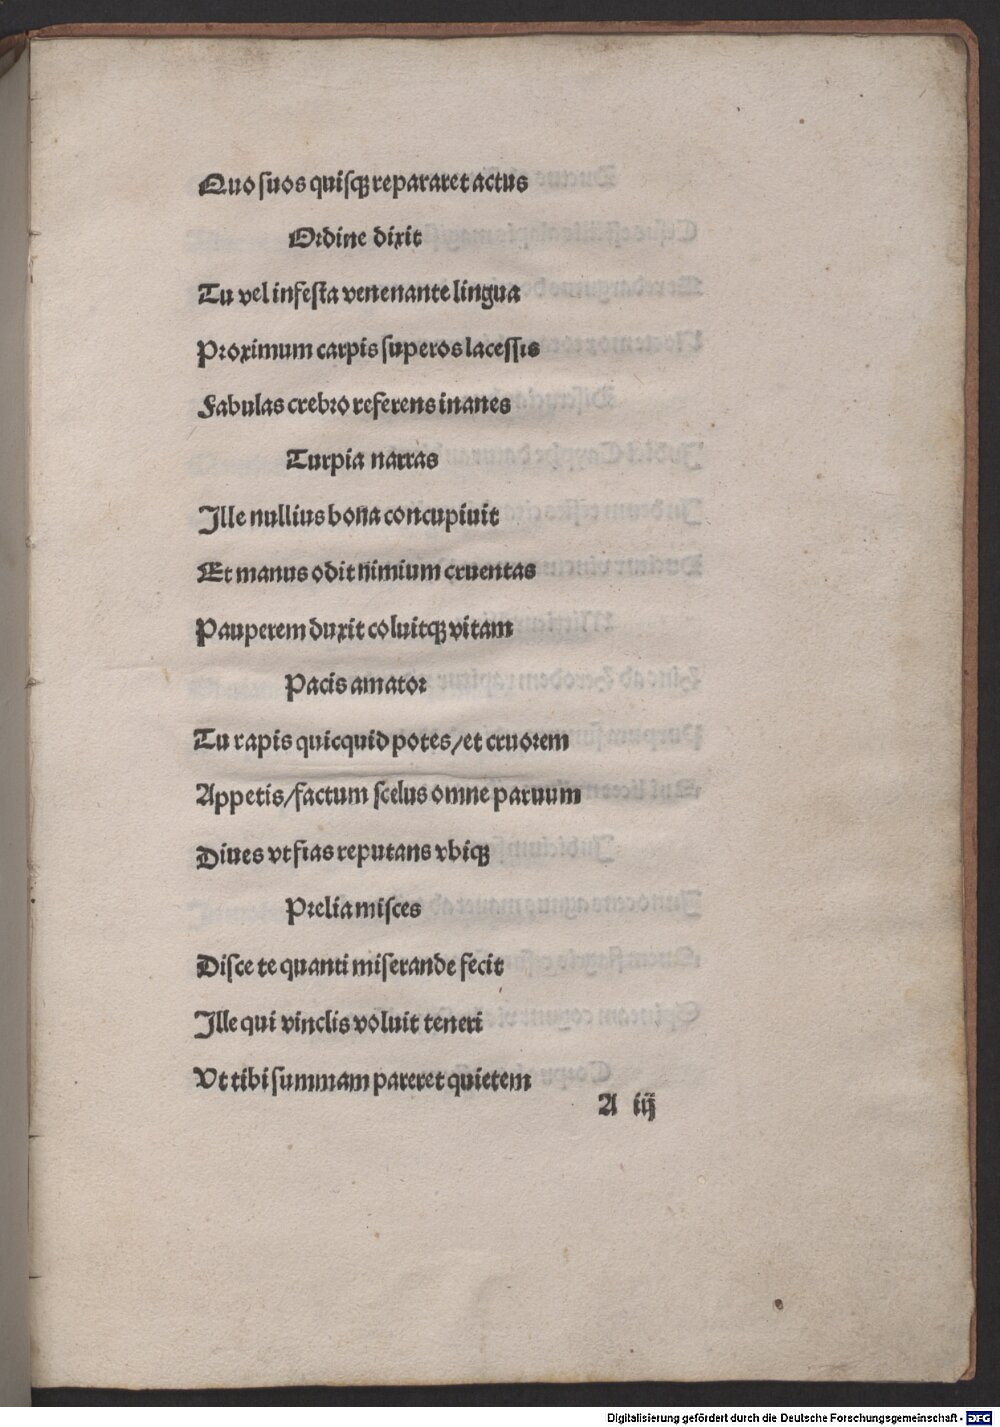 Quo suos quisqꝫ repararet actus
Ordine dixit
Tu vel infesta venenante lingua
Proximum carpis superos lacessis
Fabulas crebro referens inanes
Turpia narras
Ille nullius bona concupiuit
Et manus odit nimium cruentas
Pauperem duxit coluitqꝫ vitam
Pacis amator
Tu rapis quicquid potes/et cruorem
Appetis/factum scelus omne paruum
Diues vt fias reputans vbiqꝫ
Prelia misces
Disce te quanti miserande fecit
Ille qui vinclis voluit teneri
Vt tibi summam pareret quietem
A iij
Digitalisierung gefördert durch die Deutsche Forschungsgemeinschaft - DFG